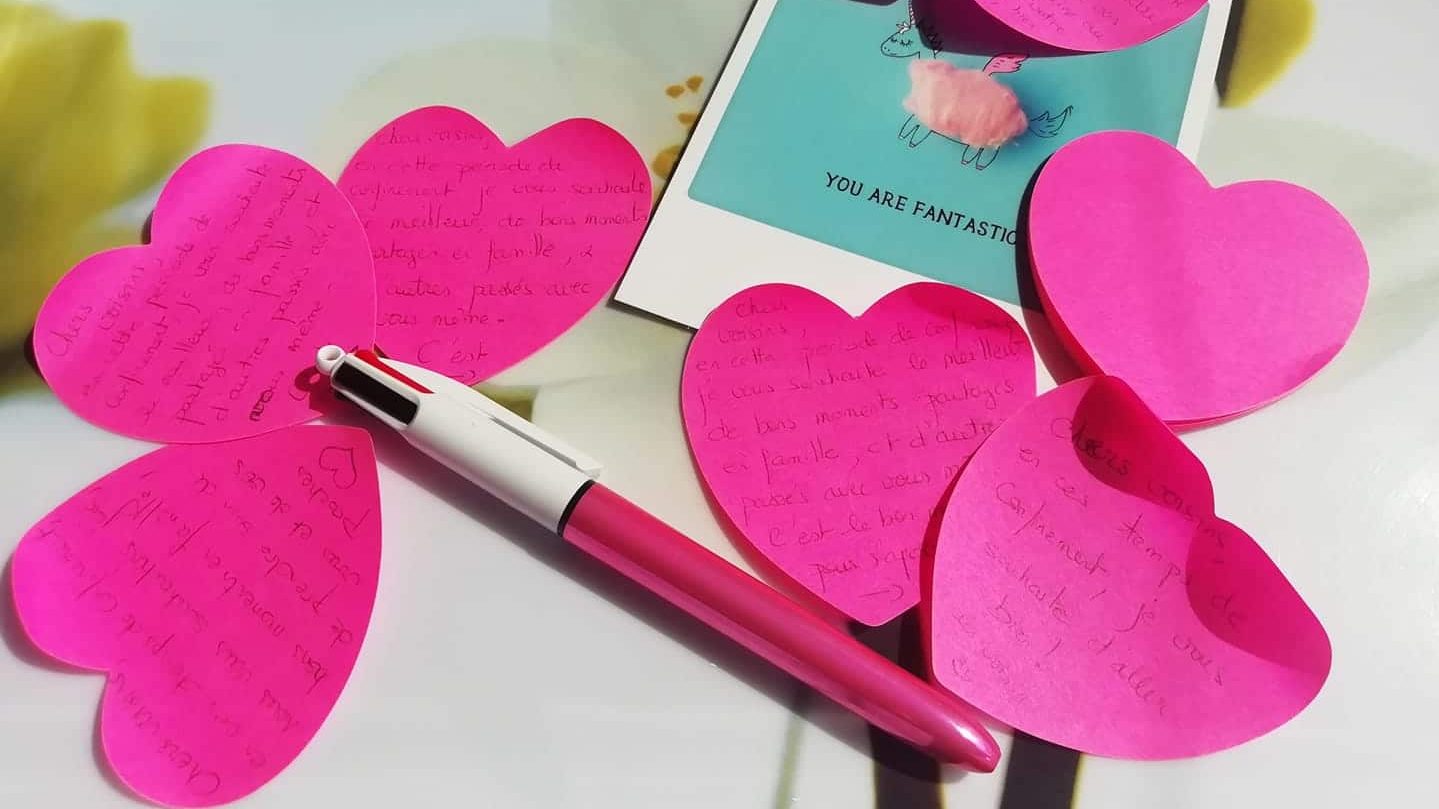 YOU ARE FANTASTIC
Chers voisins,
en cette periode de
confinement je vous souhaite
meilleur, de bons moments
en famille, &
autres passés avec
vous même.
C'est
Chers
voisins,
en cette periode de
confinement je vous souhaite
le meilleur, de bons moments
partagés en famille et
d'autres passés avec
vous même.
Chers
voisins,
en cette periode de confinement
je vous souhaite le meilleur
de bons moments partagés
en famille, et d'autres
passés avec vous
C'est le bon
pour
Chers voisins
en ces temps de
Confinement, je vous
souhaite d'aller
bien!
Chers voisins
en ces temps de
vous souhaite de
bons moments en famille,
de prendre soin de
vous et de vos
proches